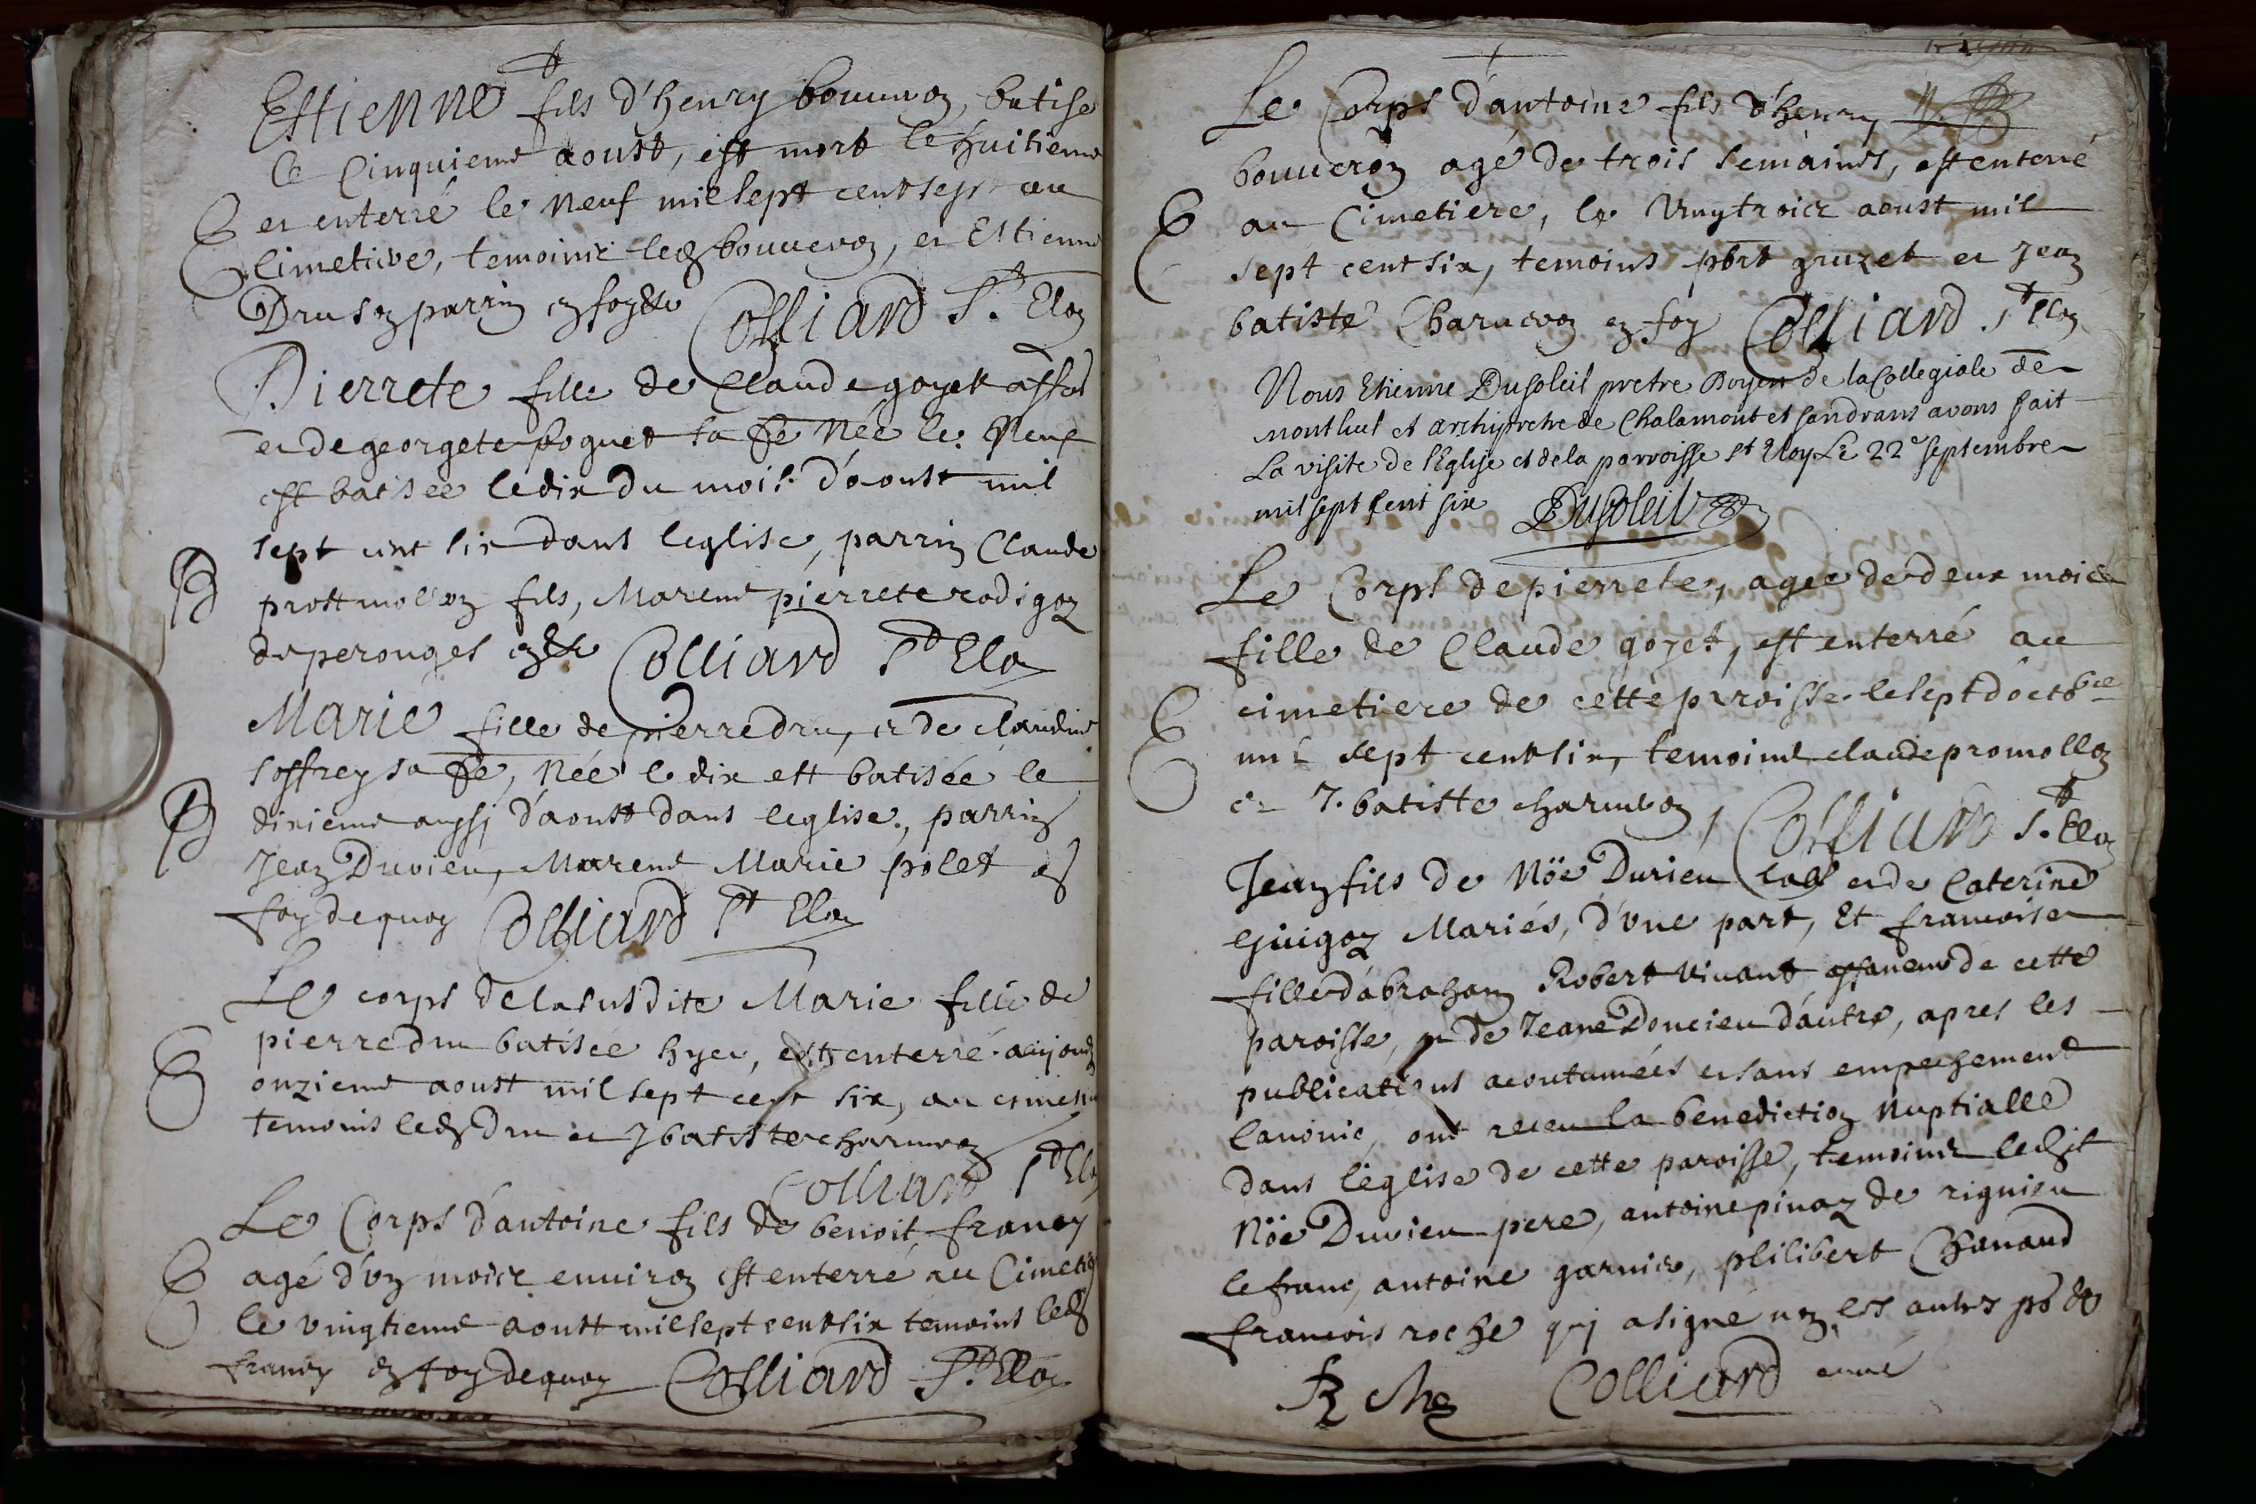 Estienne fils d'henry bouuron, batisé
le Cinquieme aoust, est mort le huitieme
E et enterré le neuf mil sept cent sept au
Cimetiere, temoins ledt bouueron, et Estienne
Dru son parrin en foy &c Colliard St. Eloy
Pierrete fille de Claude goyet
et de georgete poguet sa fe Née le Neuf
est batisée le dix du mois d'aoust mil
sept cent six dans leglise, parrin Claude
B promollon fils, Marene pierrete rodigon
de perouges en &c Colliard St Eloy
Marie fille de pierre dru, et de claudine
soffrey sa fe, Née le dix est batisée le
B dixieme aussi d'aoust dans leglise, parrin
Jean Durieu, Marene Marie polet en
foy de quoy Colliard St Eloy
Le corps de la susdite Marie fille de
E pierre dru batisée hyer, est enterré aujourd
onzieme aoust mil sept cent six, au cimetie
temoins ledt dru et J batiste charueron
Colliard St Eloy
Le Corps d'antoine fils de benoit francy
E agé d'un mois environ est enterré au Cimetie
le vingtieme aoust mil sept cent six temoins ledt
francy en foy de quoy Colliard St. Eloy
Le Corps d'antoine fils d'henry
bouueron agé de trois semaines, est enterré
E au Cimetiere, le vingtrois aoust mil
sept cent six, temoins gruzet et Jean
batiste Charueron en foy Colliard St Eloy
Nous Etienne Dusoleil pretre Doyen de la Collegiale de
montluel et archipretre de Chalamont et sandrans avons fait
La visite de l'Eglise et de la parroisse st Eloy Le 22e septembre
mil sept cent six Dusoleil
Le Corps de pierrete, agée de deux mois
fille de Claude goyet, est enterré au
E cimetiere de cette paroisse le sept d'octobre
mil sept cent six, temoins claude promollon
et J. batiste charueron, Colliard St. Eloy
Jean fils de Nöe Durieu et de Caterine
Guigon Mariés, d'une part, Et francoise
fille d'abraham Robert vivant de cette
paroisse, et de Jeane Doncieu d'autre, apres les
publications acoutumées et sans empechement
Canonic, ont receu la benediction Nuptialle
dans l'eglise de cette paroisse, temoins ledit
Nöe Durieu pere, antoine pinon de rignieu
le franc, antoine garnier, philibert Chanaud
francois roche qui a signé non les autres &c
Colliard curé